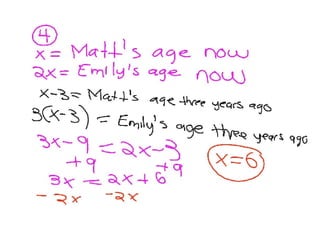 4
x = Matt's age now
2x = Emily's age now
x-3 = Matt's age three years ago
3(x-3) = Emily's age three years ago
3x-9 = 2x-3
+9 +9
3x = 2x+6
x=6
-2x -2x